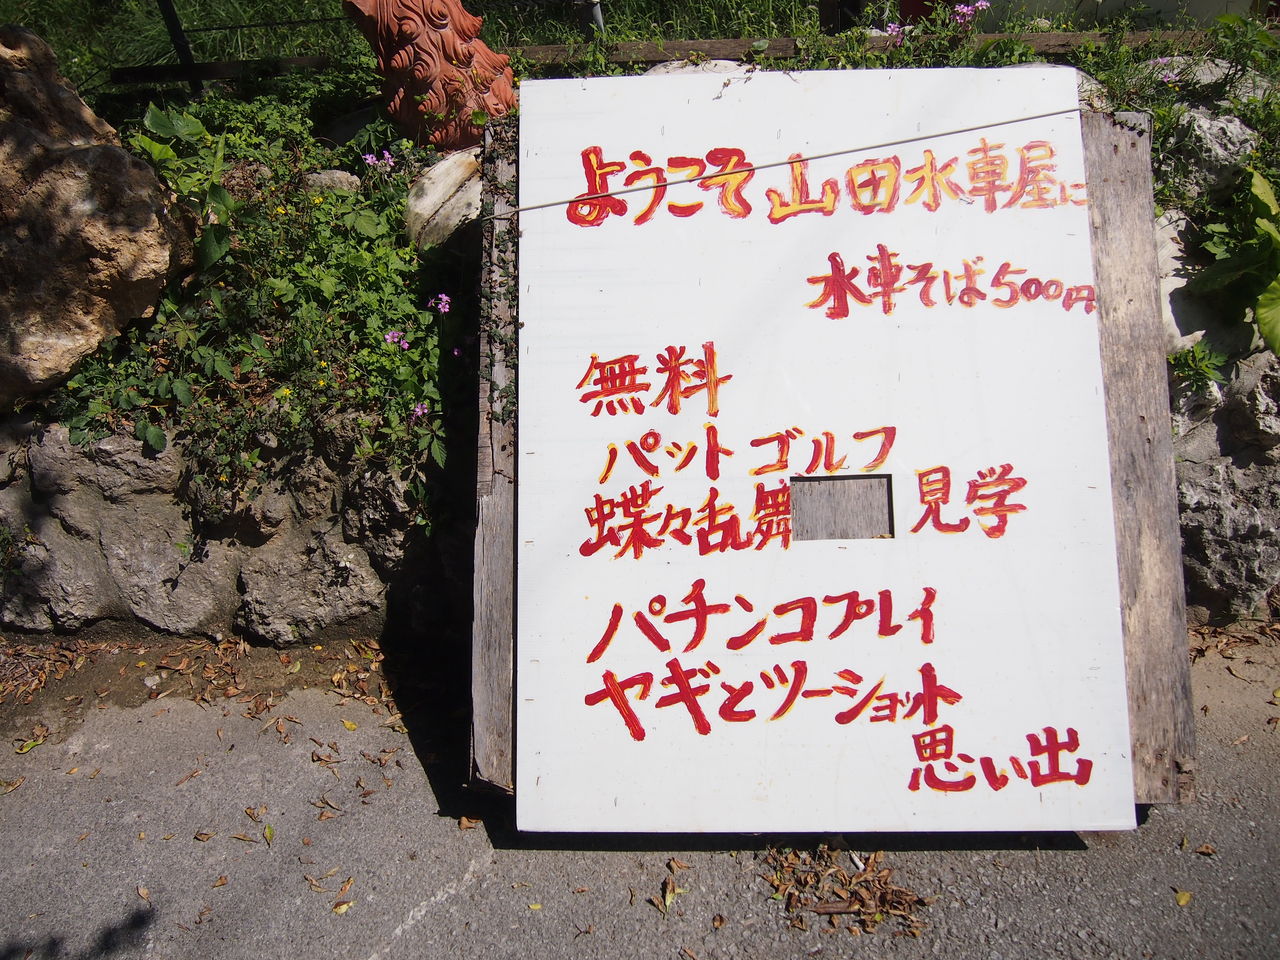 ようこそ山田水車屋に
水車そば500円
無料
パットゴルフ
蝶々乱舞 見学
パチンコプレイ
ヤギとツーショット
思い出